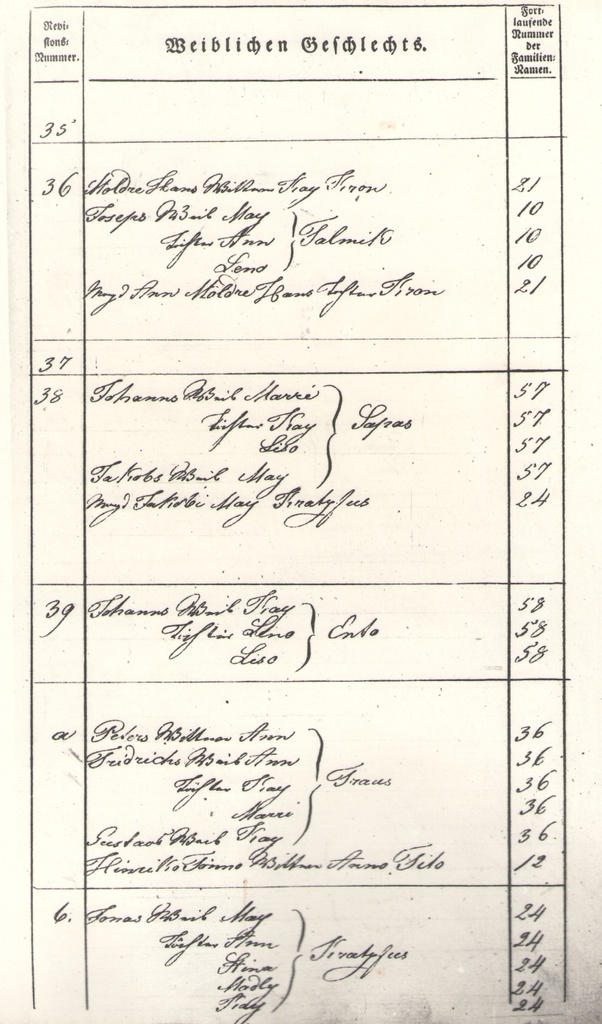 Revisions-Nummer.
Weiblichen Geschlechts.
Fortlaufende Nummer der Familien-Namen.
35
36 Moldre Hans Wittwe Kay Kron 21
Joseps Weib May 10
Töchter Ann } Talmik 10
Leno 10
Magd Ann Moldre Hans Tochter Kron 21
37
38 Johanns Weib Marri 57
Töchter Kay } Sapas 57
Liso 57
Jakobs Weib May 57
Magd Jakobi May 24
39 Johanns Weib Kay 58
Töchter Leno } Ento 58
Liso 58
a Peters Wittwe Ann 36
Fridrichs Weib Ann 36
Töchter Kay 36
Marri 36
Gustavs Weib Kay 36
Hinriko Tönno Wittwe Anno Tito 12
b. Jonas Weib May 24
Töchter Ann 24
Stina 24
Madly 24
Kay 24